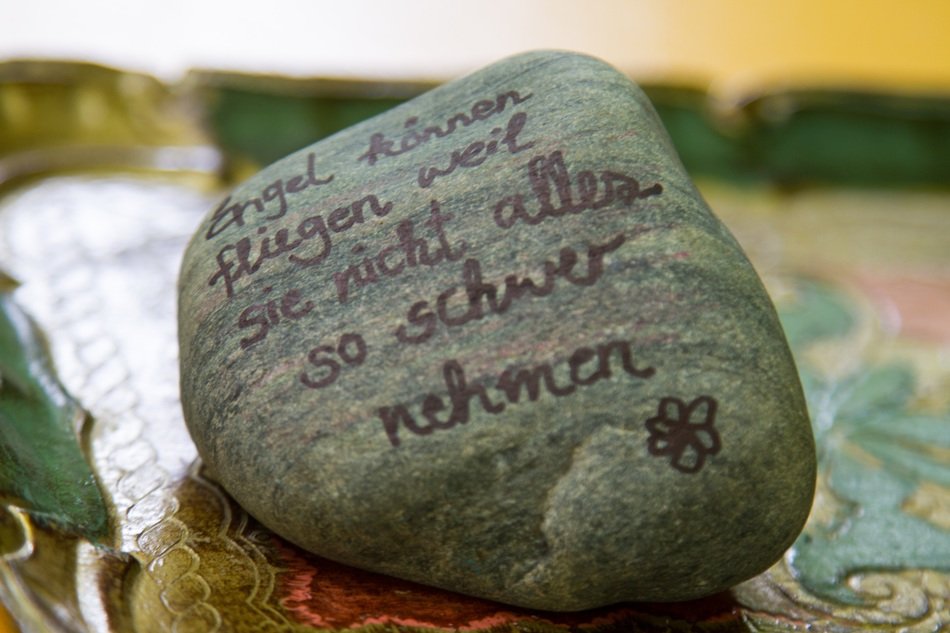 Engel können
fliegen weil
sie nicht alles
so schwer
nehmen